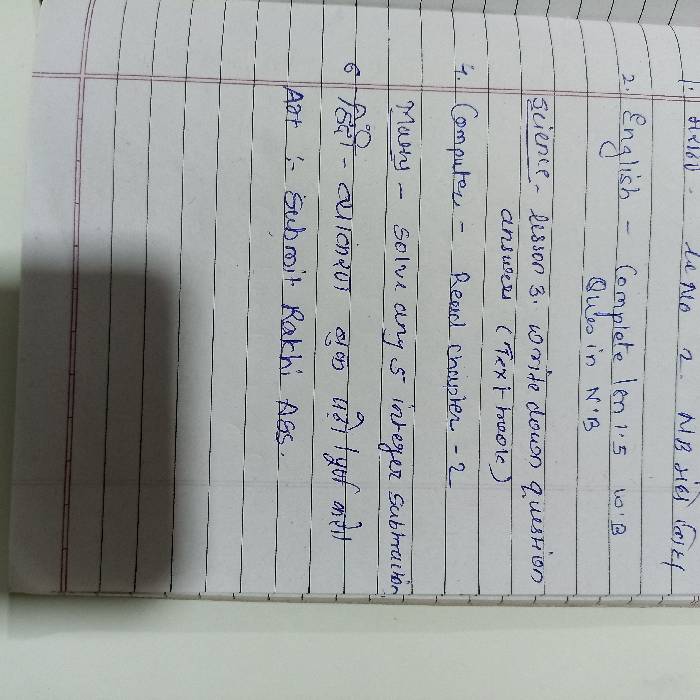 1. मराठी - L.No 2. NB मध्ये लिहा
2. English - Complete len 1.5 W.B
Ques in N.B
Science - lesson 3. write down question
answers (Text book)
4. Computer - Read chapter - 2
Maths - Solve any 5 integer subtraction
6 हिंदी - व्याकरण बुक पढ़ो / पूर्ण करो
Art :- Submit Rakhi Ass.